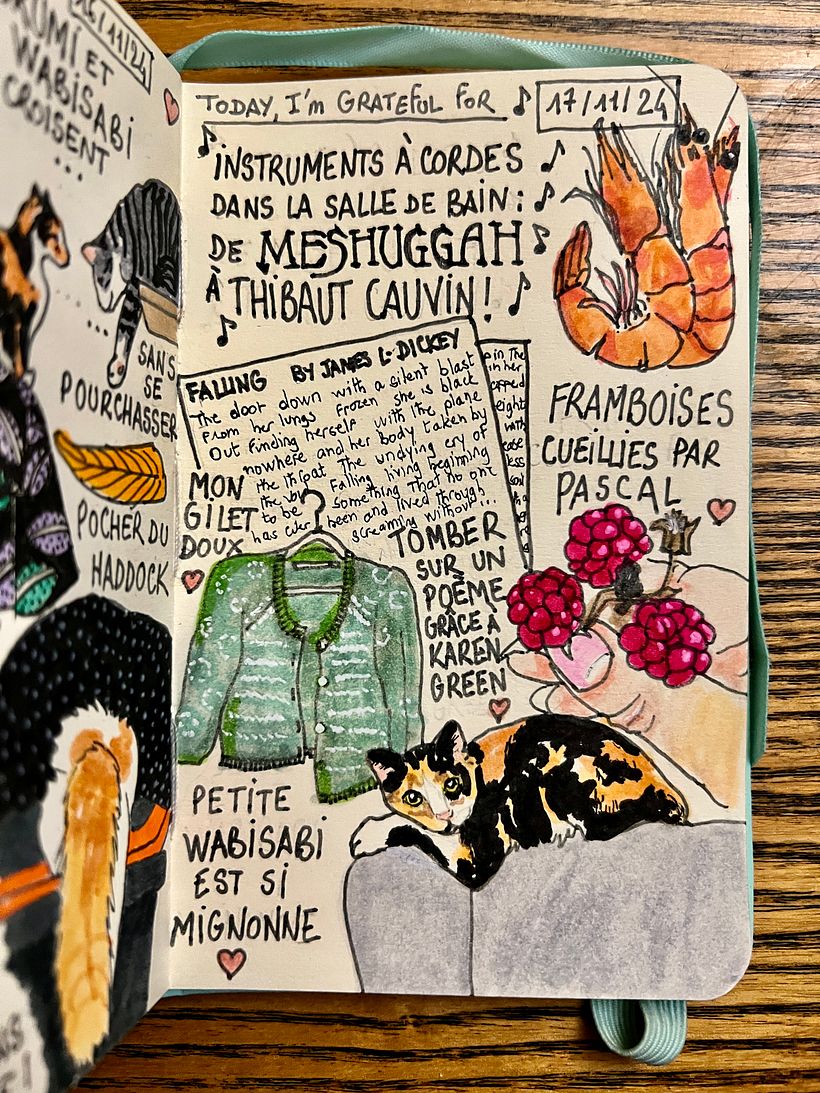 16/11/24
KUMI ET
WABISABI
CROISENT
...
SANS
SE
POURCHASSER
POCHER DU
HADDOCK
TODAY, I'm GRATEFUL FOR
17/11/24
INSTRUMENTS À CORDES
DANS LA SALLE DE BAIN :
DE MESHUGGAH
À THIBAUT CAUVIN !
FALLING BY JAMES L. DICKEY
The door down with a silent blast
From her lungs frozen she is black
Out finding herself with the plane
nowhere and her body taken by
the throat The undying cry of
the void Falling living beginning
to be something That no one
has ever been and lived through
screaming without...
in The
in her
eight
with
MON
GILET
DOUX
TOMBER
SUR UN
POÈME
GRÂCE À
KAREN
GREEN
FRAMBOISES
CUEILLIES PAR
PASCAL
PETITE
WABISABI
EST SI
MIGNONNE